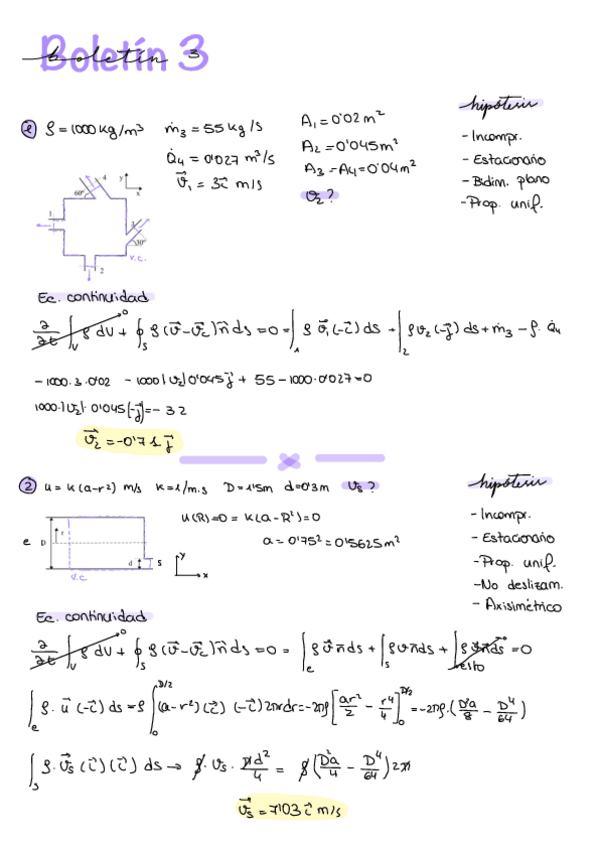 Boletín 3
boletín 3
hipótesis
① ρ = 1000 kg/m³ ṁ₃ = 55 kg/s A₁ = 0'02 m²
Q̇₄ = 0'027 m³/s A₂ = 0'045 m²
v⃗₁ = 3i⃗ m/s A₃ = A₄ = 0'04 m²
v₂?
- Incompr.
- Estacionario
- Bidim. plano
- Prop. unif.
60° 4 y x
1 3
30°
2 v.c.
Ec. continuidad
∂/∂t ∫_V ρ dV + ∮_S ρ(v⃗ - v⃗_c) n⃗ ds = 0 = ∫_1 ρ v⃗₁(-i⃗) ds + ∫_2 ρ v₂(-j⃗) ds + ṁ₃ - ρ · Q̇₄
-1000 · 3 · 0'02 - 1000 |v₂| 0'045 j⃗ + 55 - 1000 · 0'027 = 0
1000 · |v₂| · 0'045 (-j⃗) = -32
v⃗₂ = -0'71 j⃗
② u = k(a-r²) m/s k = 1/m·s D = 1'5m d = 0'3m v_s?
hipótesis
u(R) = 0 = k(a - R²) = 0
a = 0'75² = 0'5625 m²
- Incompr.
- Estacionario
- Prop. unif.
- No deslizam.
- Axisimétrico
e D r d s y x
v.c.
Ec. continuidad
∂/∂t ∫_V ρ dV + ∮_S ρ(v⃗ - v⃗_c) n⃗ ds = 0 = ∫_e ρ v⃗ n ds + ∫_s ρ v n ds + ∫_resto ρ v⃗ n ds = 0
∫_e ρ · u⃗ (-i⃗) ds = ρ ∫_0^{D/2} (a-r²)(i⃗)(-i⃗) 2πr dr = -2πρ [ar²/2 - r⁴/4]_0^{D/2} = -2πρ · (D²a/8 - D⁴/64)
∫_s ρ · v⃗_s (i⃗)(i⃗) ds → ρ · v_s · πd²/4 = ρ (D²a/4 - D⁴/64) 2π
v⃗_s = 7'03 i⃗ m/s